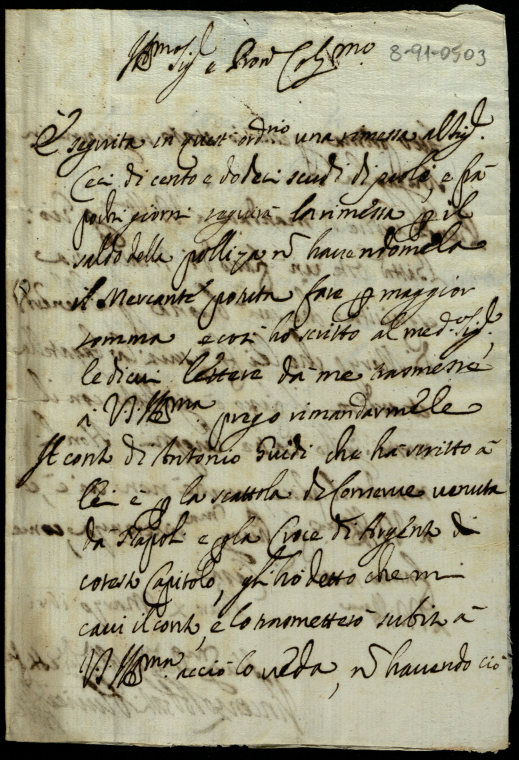 8-91-0503
Ill.mo Sig.r e Pron Col.mo
È seguita in quest'ord.rio una rimessa al Sig.r
Ceci di cento e dodeci scudi di , e frà
pochi giorni seguirà la rimessa p il
saldo della polliza nõ havendomela
il Mercante potuta fare p maggior
somma e così hò scritto al med.o Sig.r,
le di cui lettere dà me trasmesse
à V.S. Ill.ma prego rimandarmele
Il conto di Antonio Guidi che hà scritto à
lei è p la scattola di Conserve venuta
da Napoli e p la Croce di Argento di
cotesto Capitolo, gli hò detto che mi
cavi il conto, e lo trasmetterò subito à
V.S. Ill.ma acciò lo veda, nõ havendo ciò